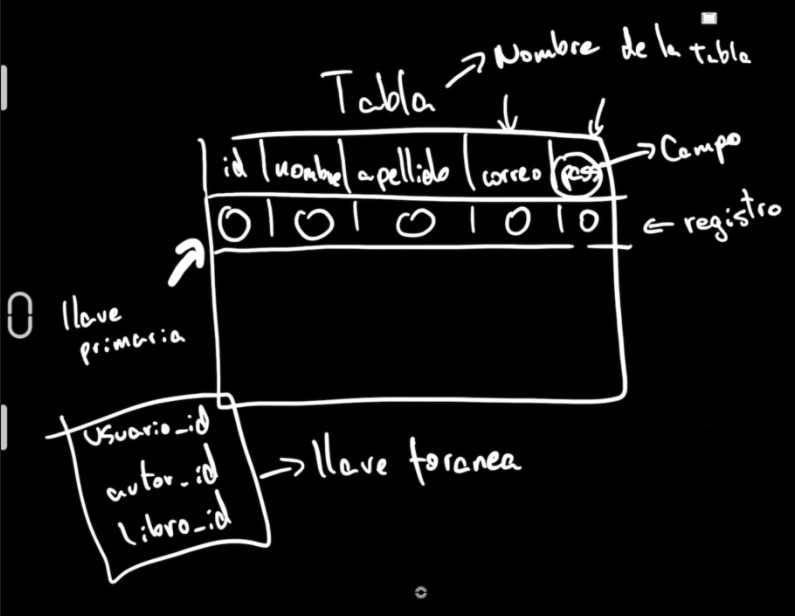 Nombre de la tabla
Tabla
id nombre apellido correo pass
Campo
0 0 0 0 0
registro
llave
primaria
usuario_id
autor_id
libro_id
llave foranea